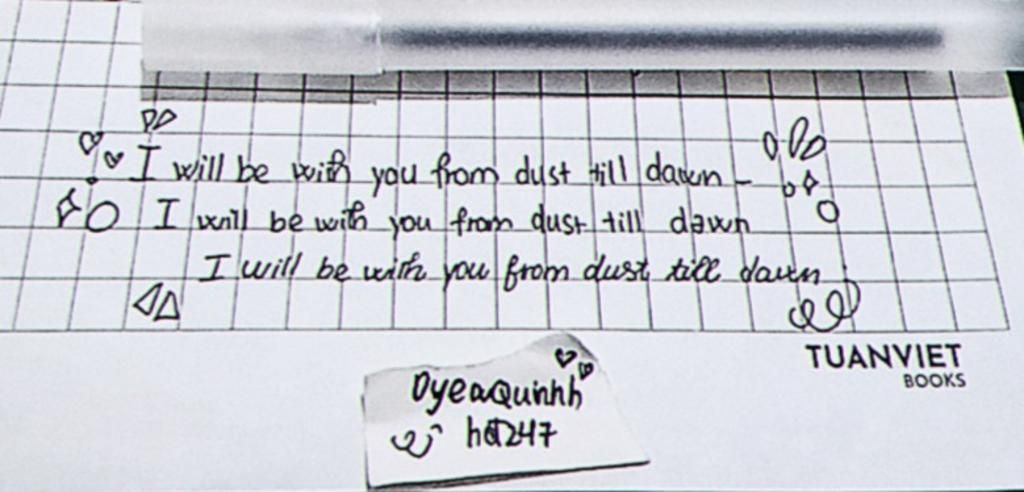 I will be with you from dust till dawn
I will be with you from dust till dawn
I will be with you from dust till dawn
TUANVIET
BOOKS
OyeaQuinhh